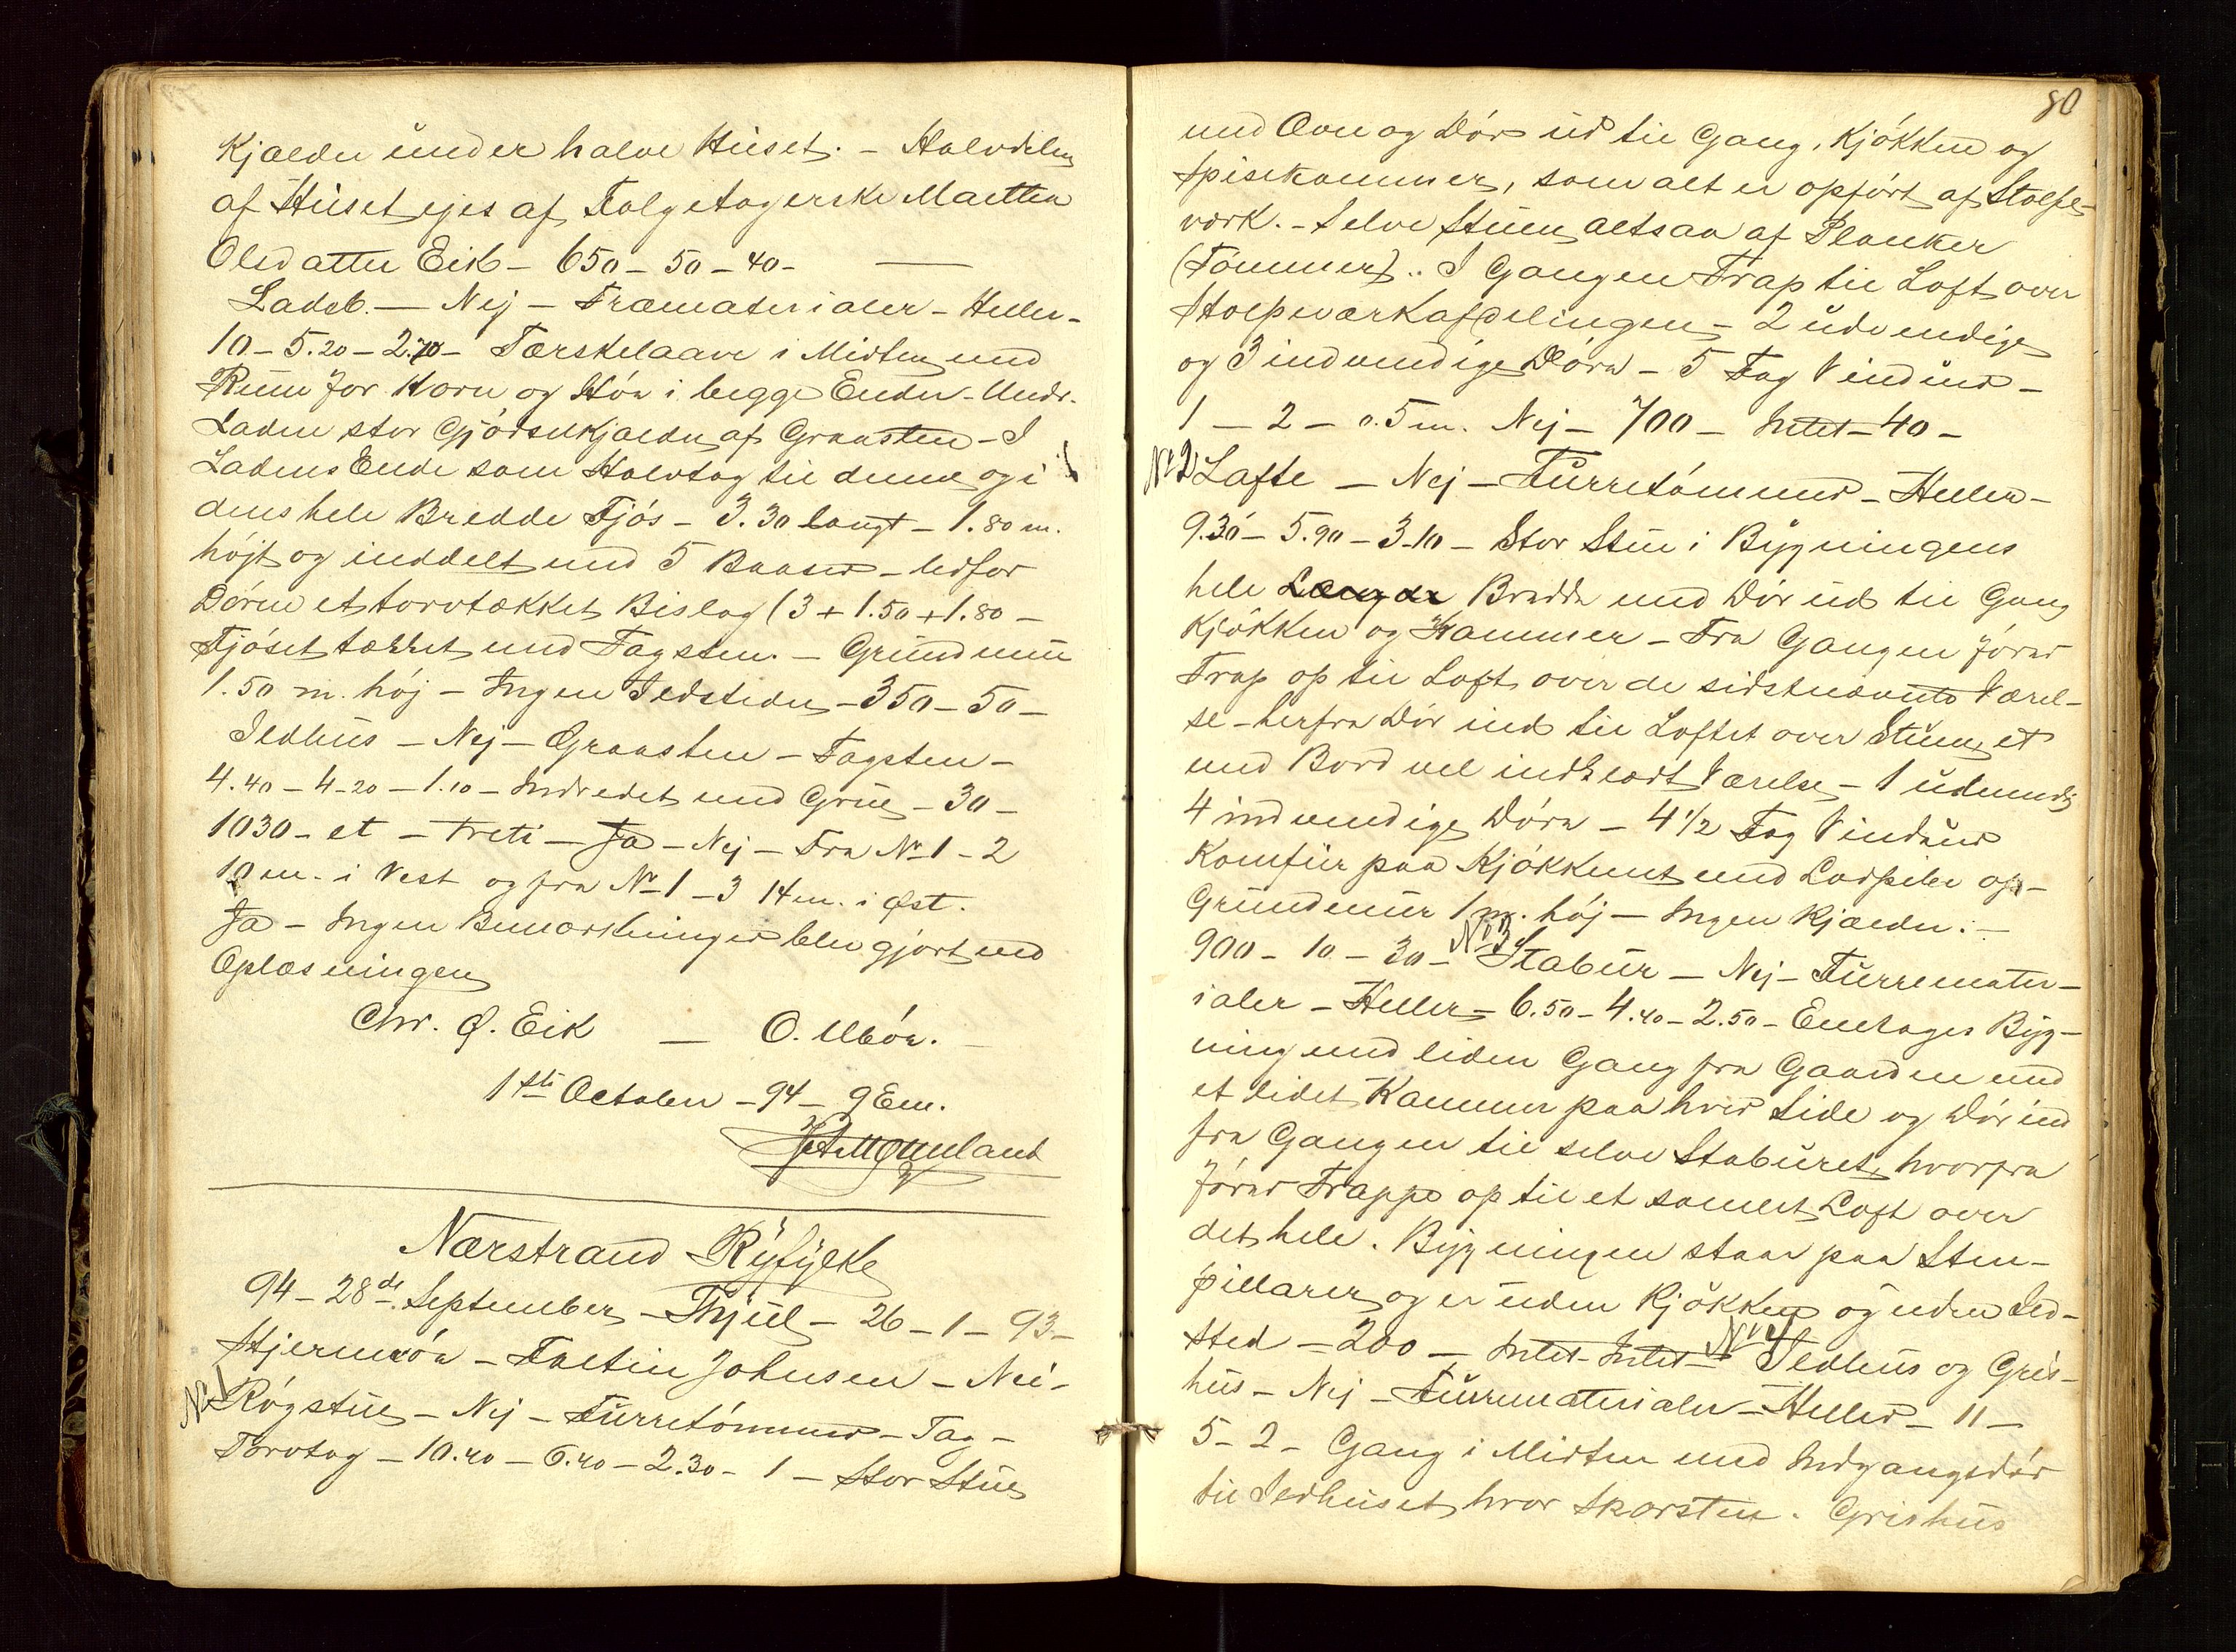 Kjælder under halve Huset. - Halvdelen
af Huset ejes af Folgetagerske Maettea
Olsdatter Eik - 650 - 50 - 40 -
Ladeb. - Nej - Træmaterialer - Heller -
10 - 5.20 - 2.70 - Tærskelaave i Midten med
Rum for Korn og Höa i begge Ender - Under
Laden stor Gjödselkjælder af Graasten - I
Ladens Ende som Halvtag til denne og i
dens hele Bredde Fjös - 3.30 langt - 1.80 m.
höjt og inddelt med 5 Baaser - Udfor
Dören et torvtækket Bislag (3 + 1.50 + 1.80 -
Fjöset tækket med Tagsten. - Grundmur
1.50 m. höj - Ingen Ildsteder - 350 - 50 -
Ildhus - Nej - Graasten - Tagsten -
4.40 - 4.20 - 1.10 - Indredet med Grue - 30 -
1030 - et - treti - Ja - Nej - Fra No 1 - 2
10 m. i Vest og fra No 1 - 3 14 m. i Øst.
Ja - Ingen Bemærkninger blev gjort ved
Oplæsningen
Chr. O. Eik - O. Uböe.
1ste October - 94 - 9 Em.

Nærstrand Ryfylke
94 - 28de September - Thjul - 26 - 1 - 93 -
Stjerneröa - Faltin Johnsen - Nei -
No 1 Rögstue - Nej - Furretömmer - Tag -
Torvtag - 10.40 - 6.40 - 2.30 - 1 - Stor Stue
80
med Ovn og Dör ud til Gang, Kjökken og
Spisekammer, som alt er opfört af Stolpe-
værk. - Selve Stuen altsaa af Planker
(Tömmer). I Gangen Trap til Loft over
Stolpeværkafdelingen - 2 udvendige
og 3 indvendige Döra - 5 Fag Vinduer -
1 - 2 - 0.5 m. Nej - 700 - Intet - 40 -
No 2 Lafte - Nej - Furretömmer - Heller -
9.30 - 5.90 - 3.10 - Stor Stue i Bygningens
hele Længde Bredde med Dör ud til Gang
Kjökken og Kammer - Fra Gangen förer
Trap op til Loft over de sidstnævnte Værel-
se - herfra Dör ind til Loftet over Stuen, et
med Bord vel indklædt Værelse - 1 udvendig
4 indvendige Döra - 4 1/2 Fag Vinduer
Komfur paa Kjökkenet med Lodpibe op -
Grundmur 1 m. höj - Ingen Kjælder. -
900 - 10 - 30 - No 3 Stabur - Nej - Furremater-
ialer - Heller - 6.50 - 4.40 - 2.50 - Enetages Byg-
ning med liden Gang fra Gaarden med
et lidet Kammer paa hver Side og Dör ind
fra Gangen til selve Staburet, hvorfra
förer Trappe op til et samlet Loft over
det hele. Bygningen staar paa Sten-
pillarer og er uden Kjökken og uden Ild-
sted - 200 - Intet - Intet - No 4 Ildhus og Gris-
hus - Nej - Furrematerialer - Heller - 11 -
5 - 2 - Gang i Midten med Indgangsdör
til Ildhuset, hvor Skorsten. Grishus